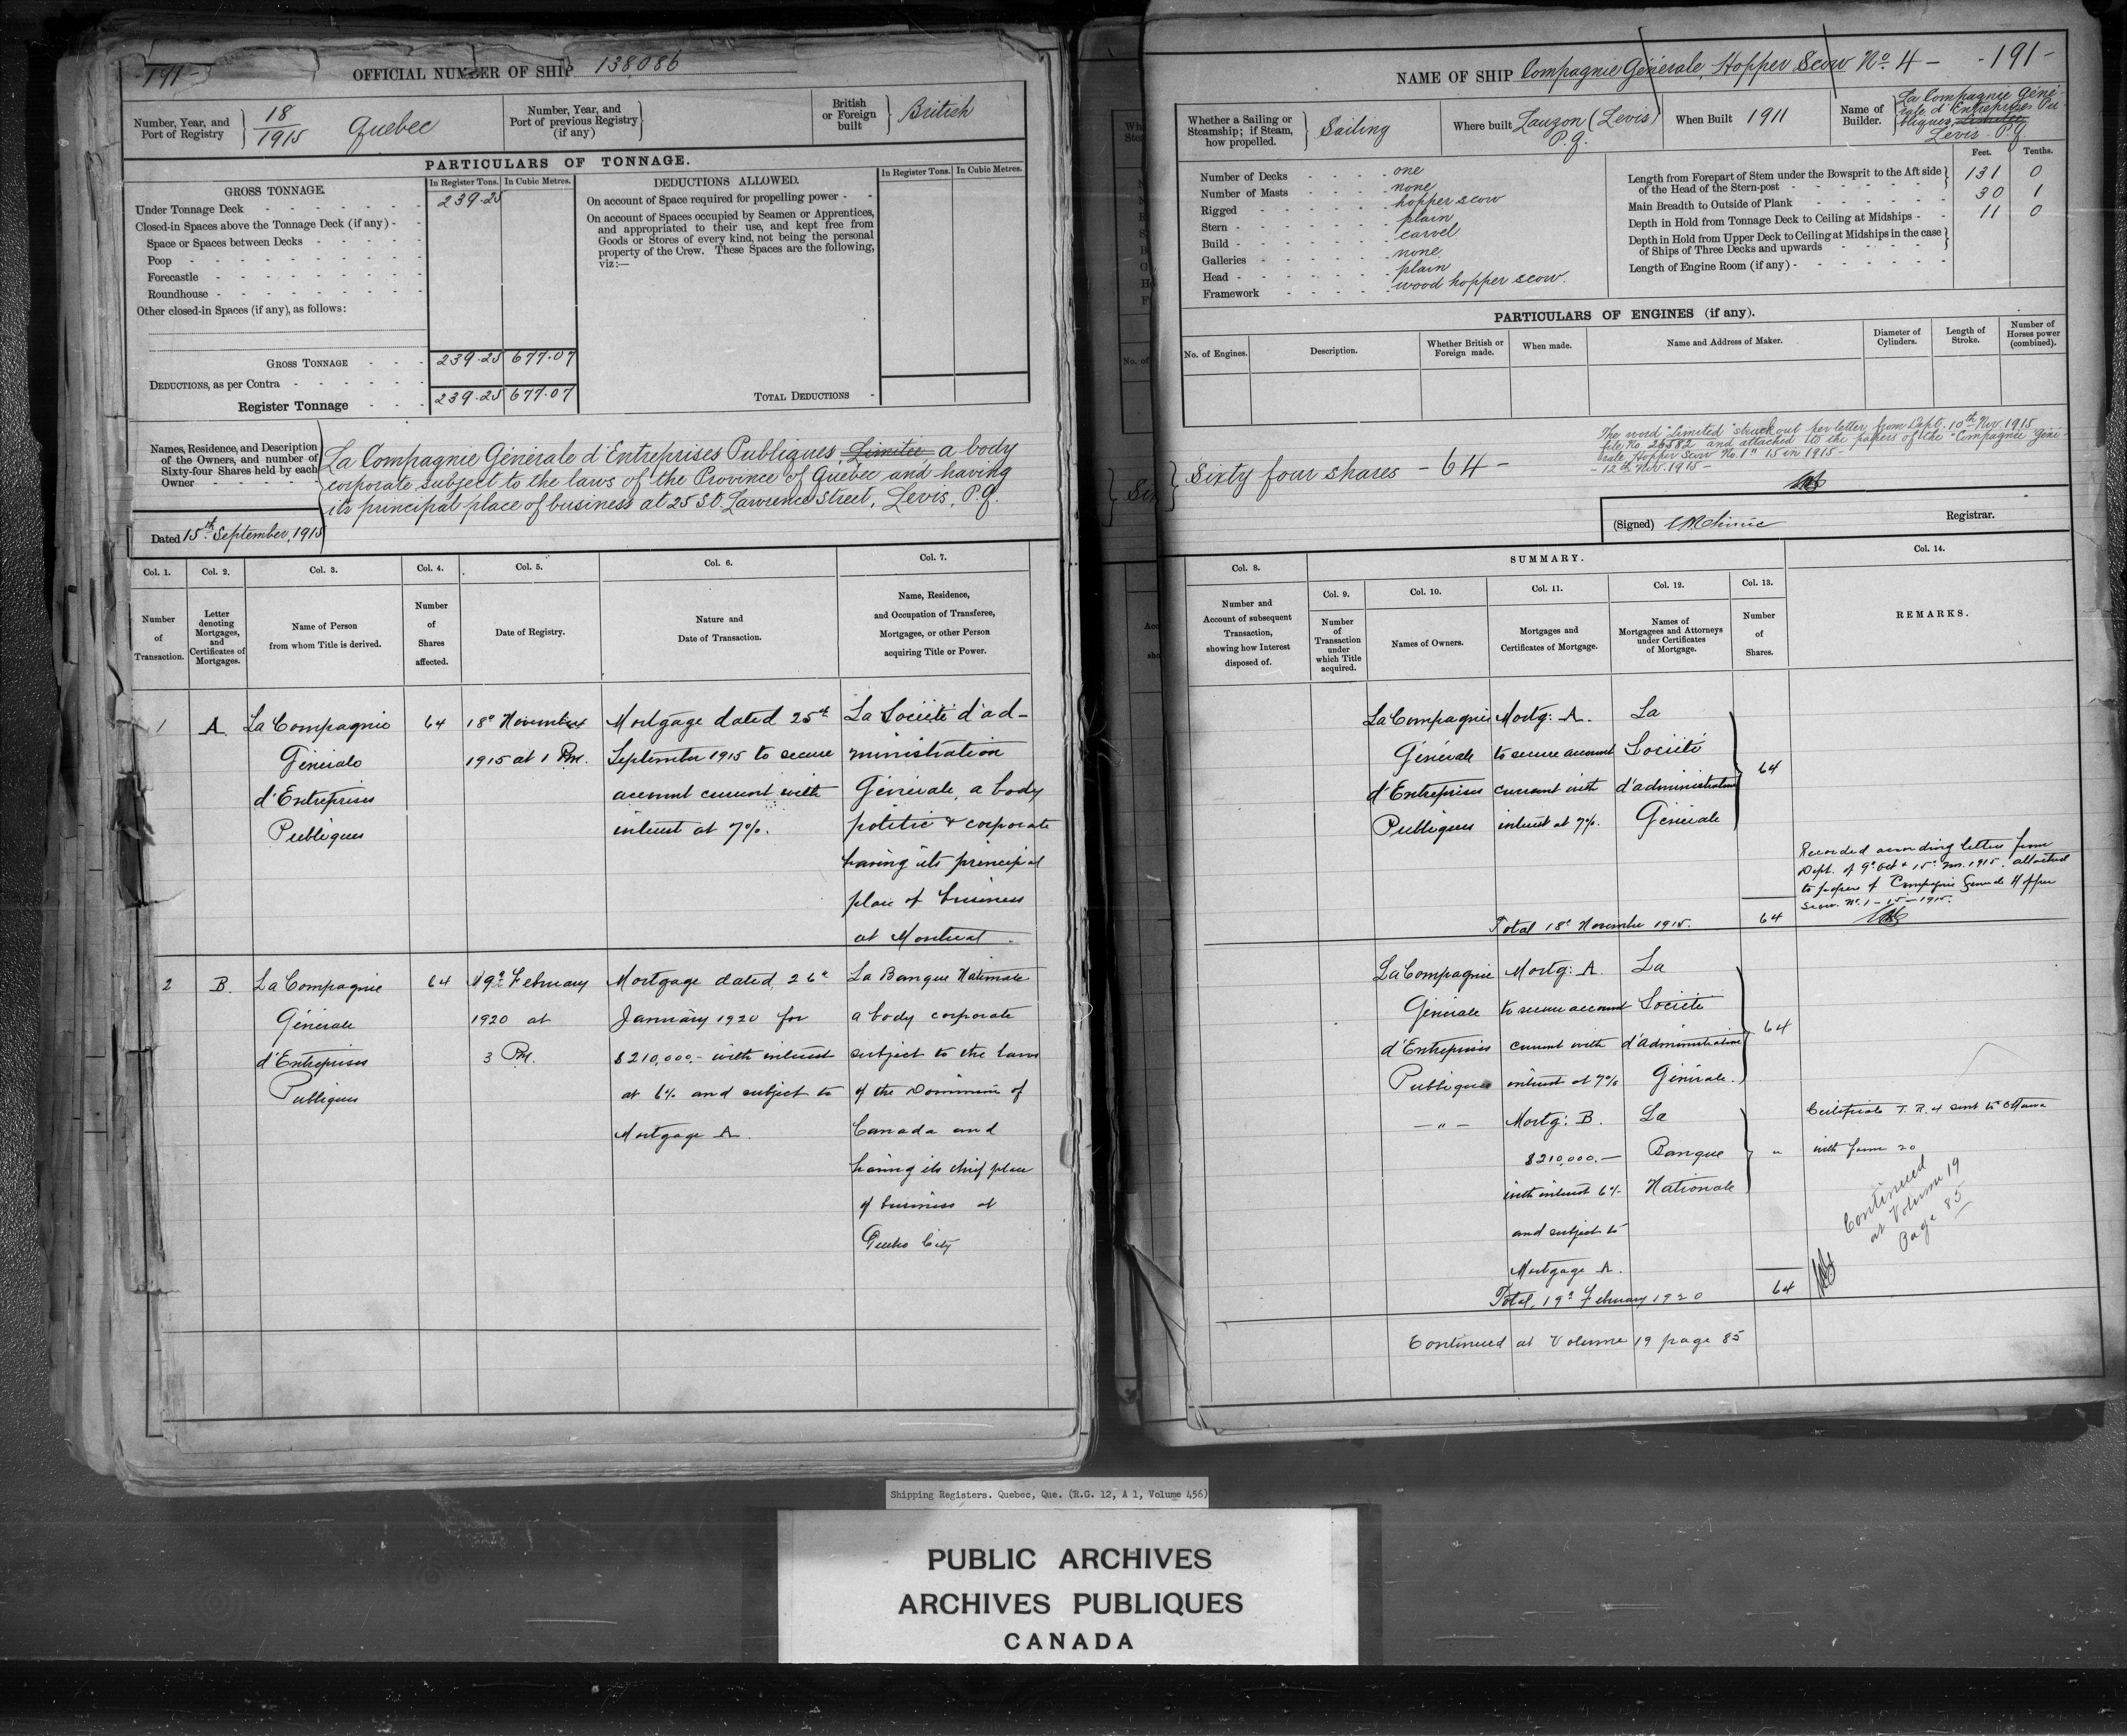 - 191 -
OFFICIAL NUMBER OF SHIP 138,086
Number, Year, and Port of Registry 18/1915 Quebec
Number, Year, and Port of previous Registry (if any)
British or Foreign built British
PARTICULARS OF TONNAGE.
GROSS TONNAGE.
In Register Tons. In Cubic Metres.
Under Tonnage Deck 239.25
Closed-in Spaces above the Tonnage Deck (if any)
Space or Spaces between Decks
Poop
Forecastle
Roundhouse
Other closed-in Spaces (if any), as follows:
GROSS TONNAGE 239.25 677.07
DEDUCTIONS, as per Contra
Register Tonnage 239.25 677.07
DEDUCTIONS ALLOWED.
In Register Tons. In Cubic Metres.
On account of Space required for propelling power
On account of Spaces occupied by Seamen or Apprentices,
and appropriated to their use, and kept free from
Goods or Stores of every kind, not being the personal
property of the Crew. These Spaces are the following,
viz:—
TOTAL DEDUCTIONS
Names, Residence, and Description
of the Owners, and number of
Sixty-four Shares held by each
Owner
La Compagnie Générale d'Entreprises Publiques Limitée a body
corporate subject to the laws of the Province of Quebec and having
its principal place of business at 25 St. Lawrence Street, Levis, P.Q.
Dated 15th September, 1915
Col. 1. Col. 2. Col. 3. Col. 4. Col. 5. Col. 6. Col. 7.
Number of Transaction.
Letter denoting Mortgages, and Certificates of Mortgages.
Name of Person from whom Title is derived.
Number of Shares affected.
Date of Registry.
Nature and Date of Transaction.
Name, Residence, and Occupation of Transferee, Mortgagee, or other Person acquiring Title or Power.
1 A. La Compagnie 64 18th November Mortgage dated 25th La Société d'ad-
Générale 1915 at 1 P.M. September 1915 to secure ministration
d'Entreprises account current with Générale, a body
Publiques interest at 7%. politic & corporate
having its principal
place of business
at Montreal.
2 B. La Compagnie 64 19th February Mortgage dated 26th La Banque Nationale
Générale 1920 at January 1920 for a body corporate
d'Entreprises 3 P.M. $210,000.- with interest subject to the laws
Publiques at 6% and subject to of the Dominion of
Mortgage A. Canada and
having its chief place
of business at
Quebec City
NAME OF SHIP Compagnie Générale, Hopper Scow No. 4 - - 191 -
Whether a Sailing or Steamship; if Steam, how propelled. Sailing
Where built Lauzon (Levis) P.Q.
When Built 1911
Name of Builder. La Compagnie Géné-
rale d'Entreprises Pu-
bliques, Limitée
Levis - P.Q.
Number of Decks one
Number of Masts none
Rigged hopper scow
Stern plain
Build carvel
Galleries none
Head plain
Framework wood hopper scow.
Feet. Tenths.
Length from Forepart of Stem under the Bowsprit to the Aft side of the Head of the Stern-post 131 0
Main Breadth to Outside of Plank 30 1
Depth in Hold from Tonnage Deck to Ceiling at Midships 11 0
Depth in Hold from Upper Deck to Ceiling at Midships in the case of Ships of Three Decks and upwards
Length of Engine Room (if any)
PARTICULARS OF ENGINES (if any).
No. of Engines. Description. Whether British or Foreign made. When made. Name and Address of Maker. Diameter of Cylinders. Length of Stroke. Number of Horses power (combined).
The word "Limited" struck out per letter from Dept. 10th Nov. 1915
file No. 26582 and attached to the papers of the "Compagnie Géné-
rale Hopper Scow No. 1" 15 in 1915 -
- 12th Nov. 1915 -
Sixty four shares - 64 -
(Signed) Registrar.
SUMMARY.
Col. 8. Col. 9. Col. 10. Col. 11. Col. 12. Col. 13. Col. 14.
Number and Account of subsequent Transaction, showing how Interest disposed of.
Number of Transaction under which Title acquired.
Names of Owners.
Mortgages and Certificates of Mortgage.
Names of Mortgagees and Attorneys under Certificates of Mortgage.
Number of Shares.
REMARKS.
La Compagnie Mortg: A. La
Générale to secure account Société
d'Entreprises current with d'administration 64
Publiques interest at 7%. Générale
Recorded according letters from
Dept. of 9th Oct & 15th Nov. 1915. attached
to papers of Compagnie Generale Hopper
Scow. No. 1 - 15 - 1915.
Total 18th November 1915. 64
La Compagnie Mortg: A. La
Générale to secure account Société
d'Entreprises current with d'administration 64
Publiques interest at 7% Générale.
- " - Mortg: B. La
$210,000.- Banque "
with interest 6% Nationale
and subject to
Mortgage A.
Certificate T. R. 4 sent to Ottawa
with form 20
Continued
at Volume 19
Page 85
Total, 19th February 1920 64
Continued at Volume 19 page 85
Shipping Registers. Quebec, Que. (R.G. 12, A 1, Volume 456)
PUBLIC ARCHIVES
ARCHIVES PUBLIQUES
CANADA